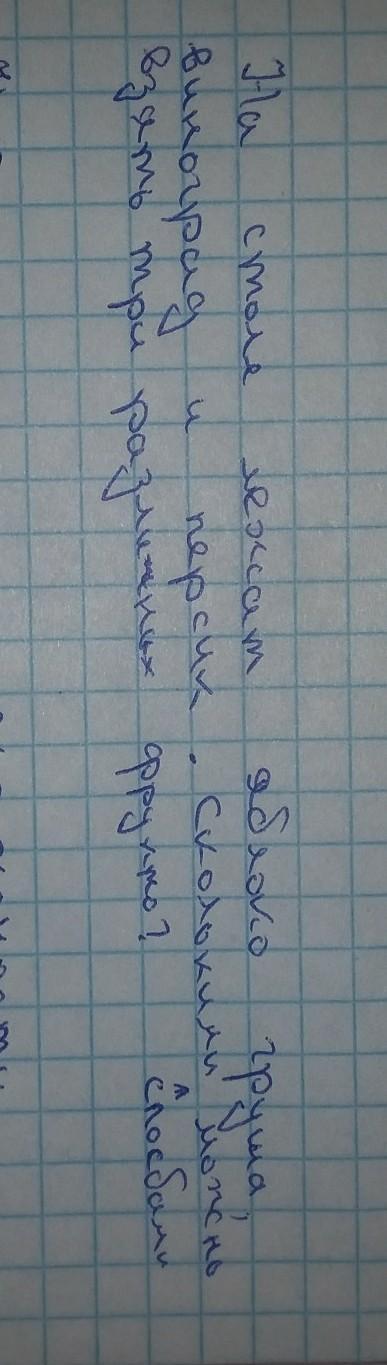 На столе лежат яблоко груша,
виноград и персик. Сколькими можно
взять три различных фрукта? ^ способами